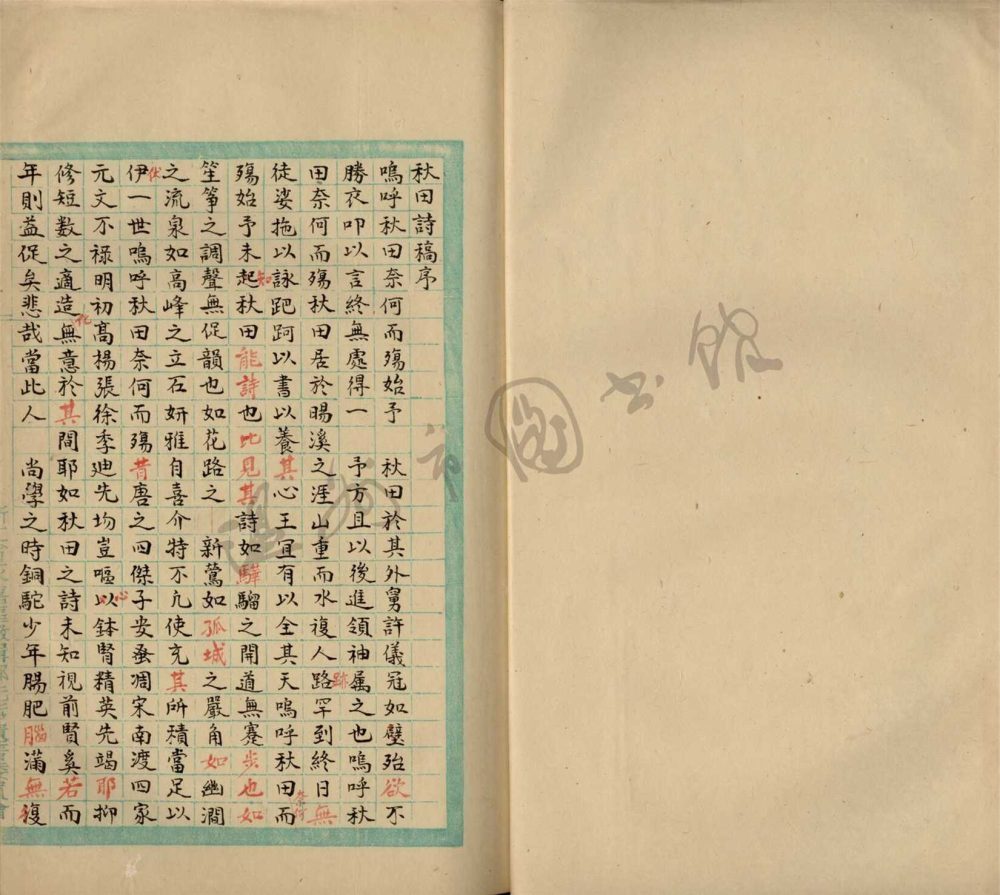 秋田詩稿序
嗚呼秋田奈何而殤始予 秋田於其外舅許儀冠如璧殆欲不
勝衣叩以言終無處得一 予方且以後進領袖屬之也嗚呼秋
田奈何而殤秋田居於暘溪之涯山重而水複人路跡罕到終日無
徒娑拖以詠跁跒以書以養其心王宜有以全其天嗚呼秋田而奈何
殤始予未起知秋田能詩也比見其詩如驊騮之開道無蹇步也如
笙箏之調聲無促韻也如花路之 新鶯如孤城之嚴角如幽澗
之流泉如高峰之立石妍雅自喜介特不凡使充其所積當足以
伏伊一世嗚呼秋田奈何而殤昔唐之四傑子安蚤凋宋南渡四家
元文不祿明初高楊張徐季迪先均豈嘔以心鉢腎精英先竭耶抑
修短數之適造化無意於其間耶如秋田之詩未知視前賢奚若而
年則益促矣悲哉當此人 尚學之時銅駝少年腸肥腦滿無復